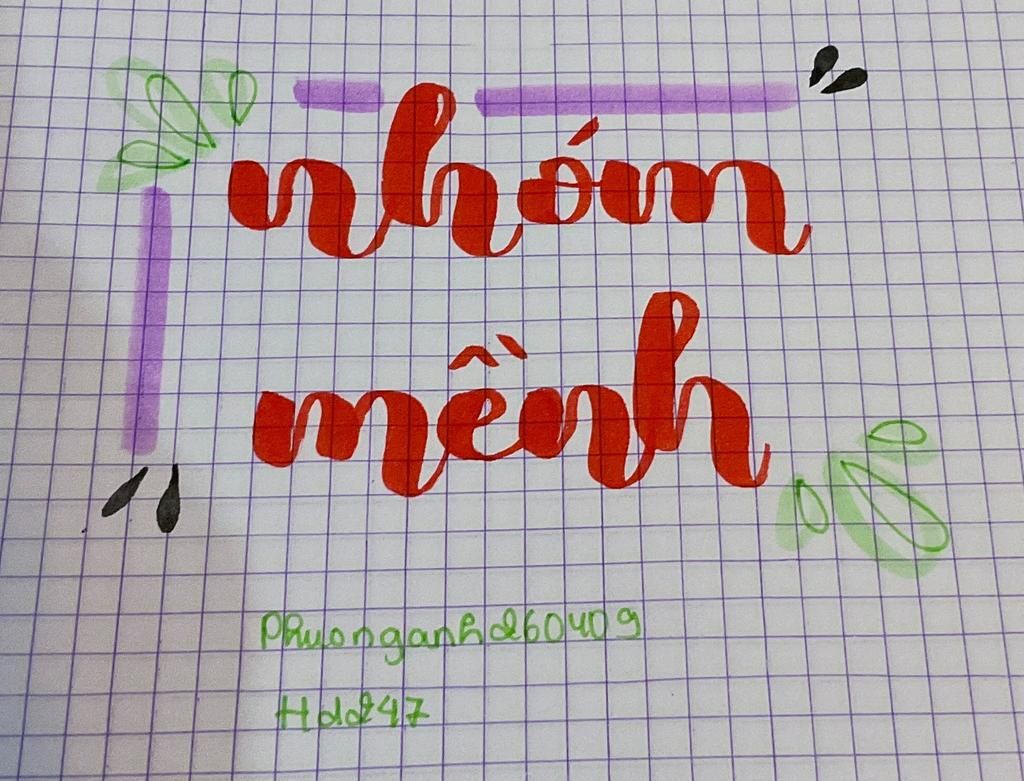 nhóm
mềnh
Phuonganh260409
Hdd247